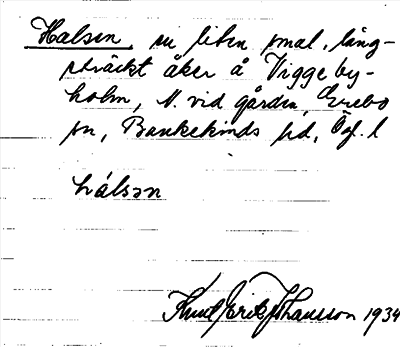 Halsen, en liten smal, lång-
sträckt åker å Viggeby-
holm, N. vid gården, Örebo
sn, Bankekinds hd, Ög. l
hálsən
Knut Erik Johansson 1934